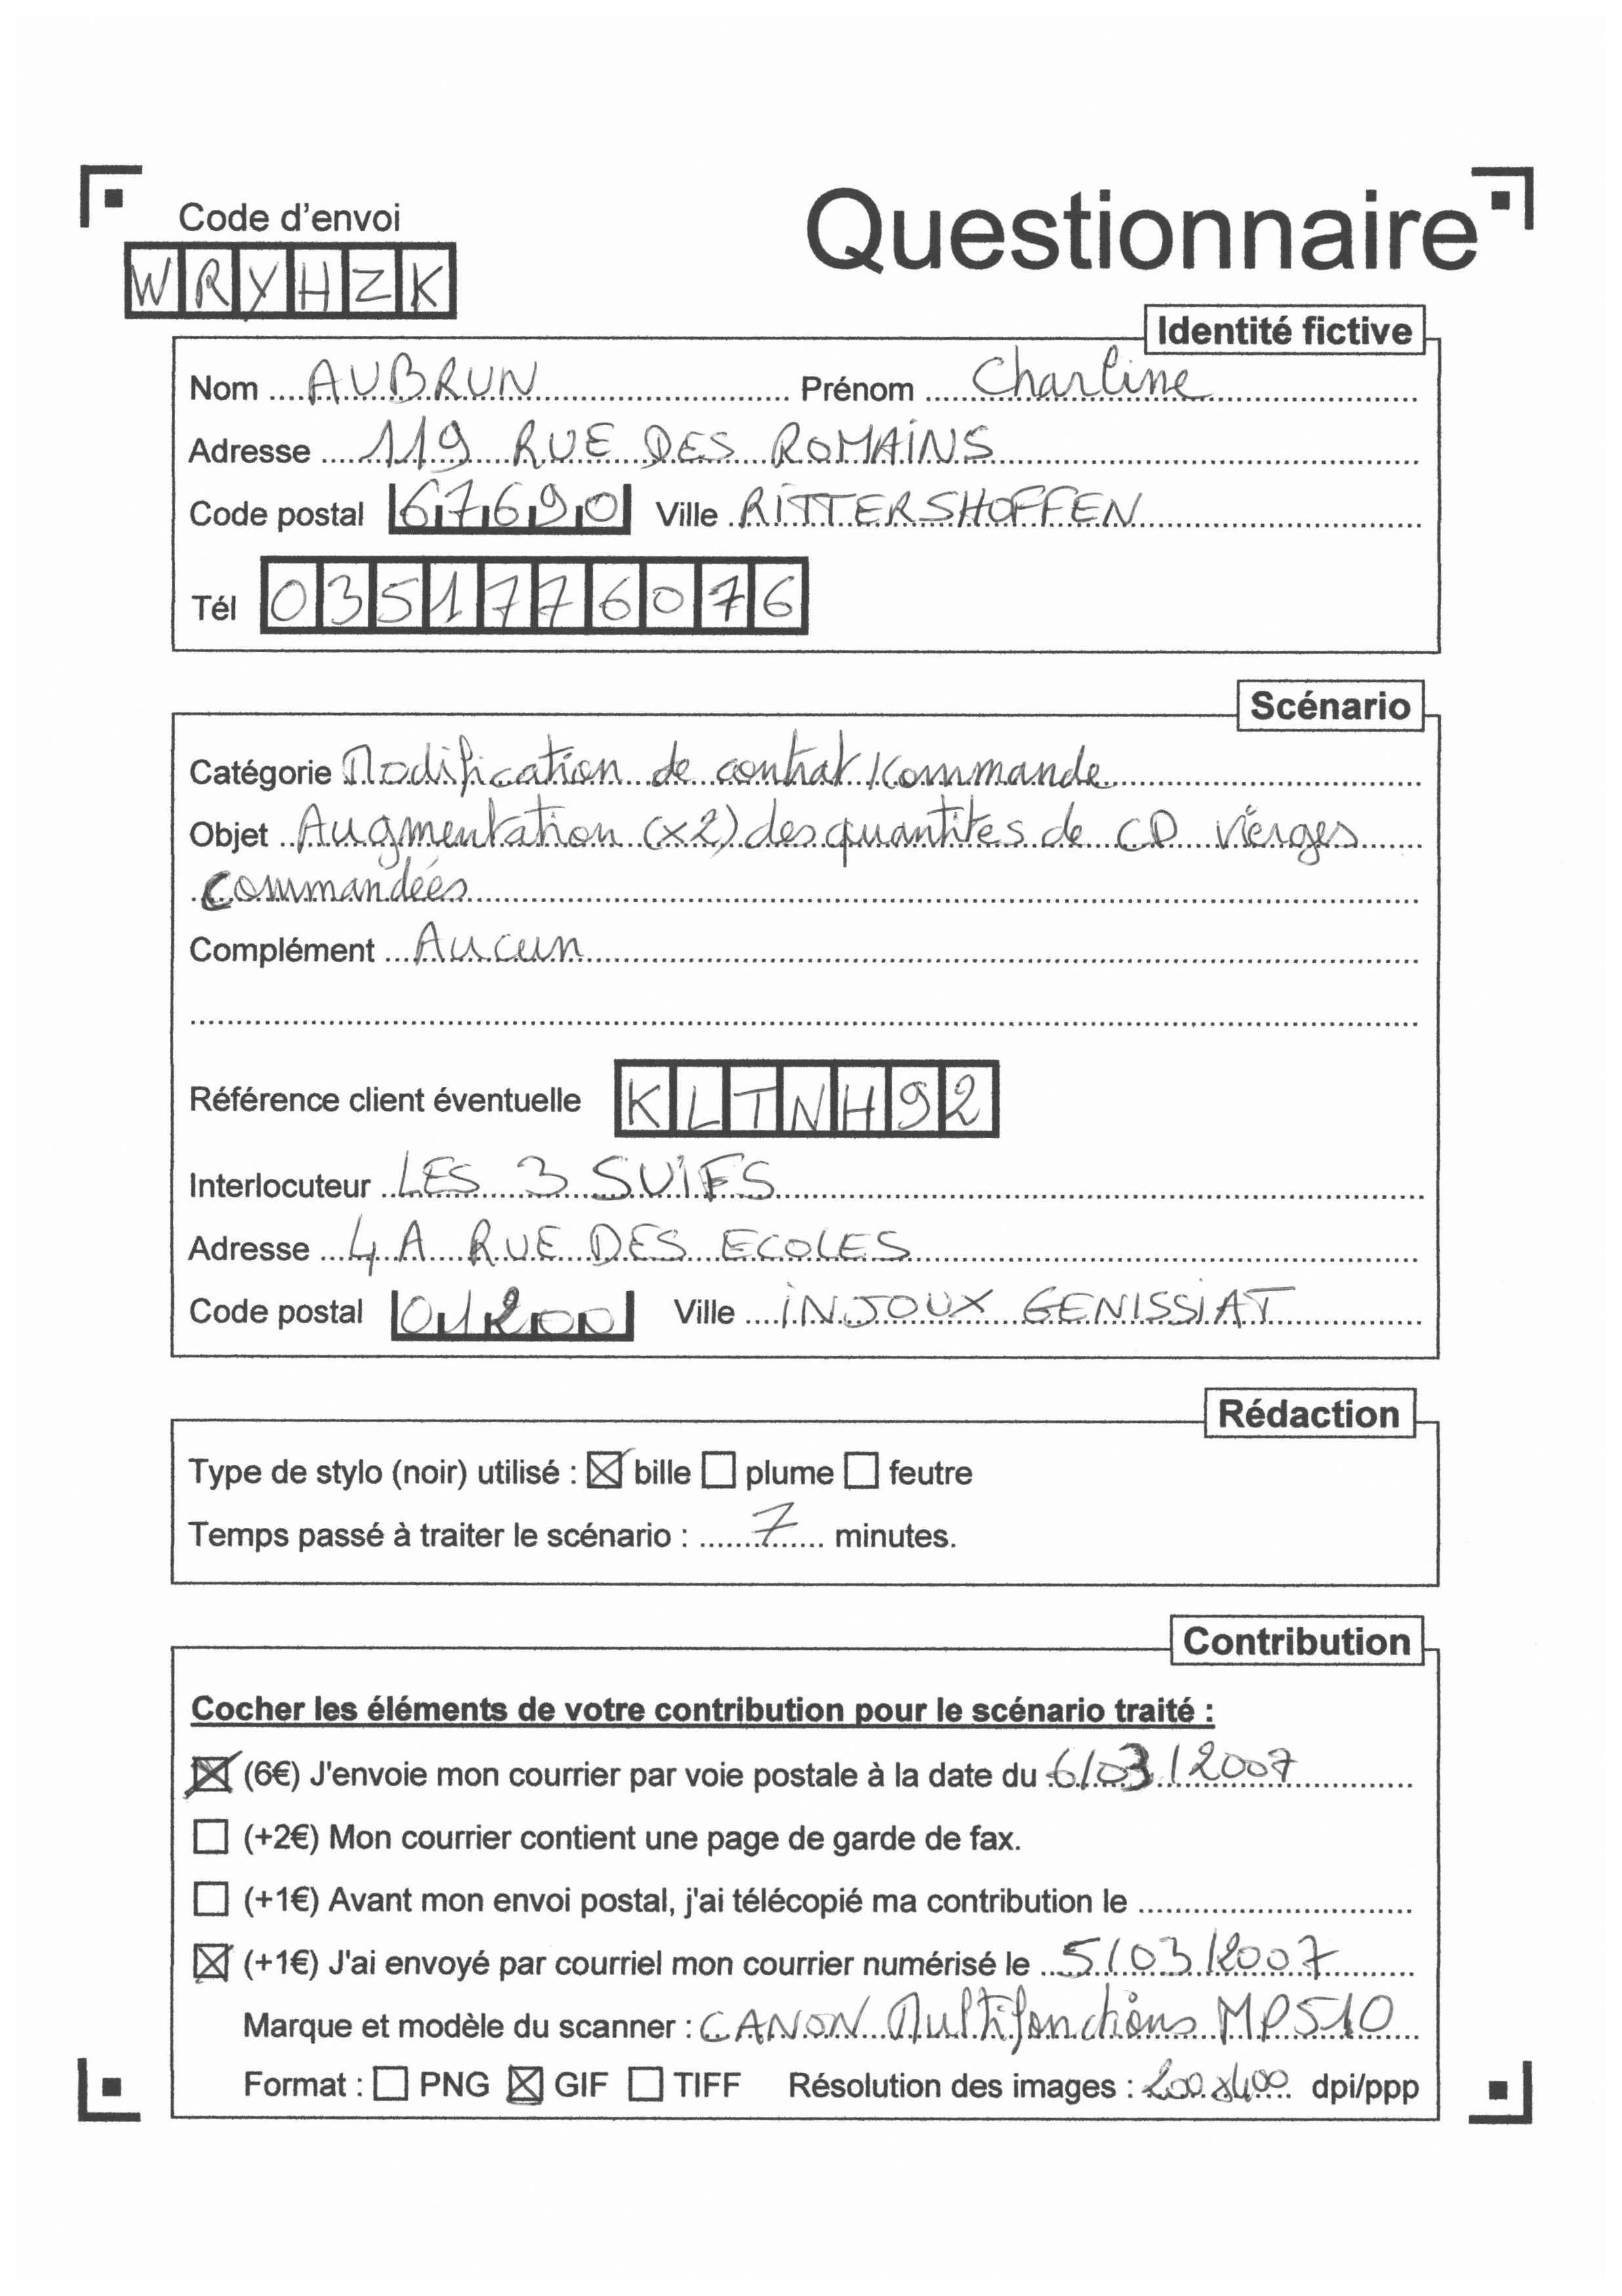 Code d'envoi
Questionnaire
WRYHZK
Identité fictive
Nom AUBRUN Prénom Charline
Adresse 119 RUE DES ROMAINS
Code postal 67690 Ville RITTERSHOFFEN
Tél 0351776076
Scénario
Catégorie Modification de contrat/commande
Objet Augmentation (x2) des quantités de CD vierges
Commandées
Complément Aucun
Référence client éventuelle KLTNH92
Interlocuteur LES 3 SUIFS
Adresse 4 A RUE DES ECOLES
Code postal 01200 Ville INJOUX GENISSIAT
Rédaction
Type de stylo (noir) utilisé : ☒ bille ☐ plume ☐ feutre
Temps passé à traiter le scénario : 7 minutes.
Contribution
Cocher les éléments de votre contribution pour le scénario traité :
☒ (6€) J'envoie mon courrier par voie postale à la date du 6/03/2007
☐ (+2€) Mon courrier contient une page de garde de fax.
☐ (+1€) Avant mon envoi postal, j'ai télécopié ma contribution le
☒ (+1€) J'ai envoyé par courriel mon courrier numérisé le 5/03/2007
Marque et modèle du scanner : CANON Multifonctions MP510
Format : ☐ PNG ☒ GIF ☐ TIFF Résolution des images : 200x400 dpi/ppp